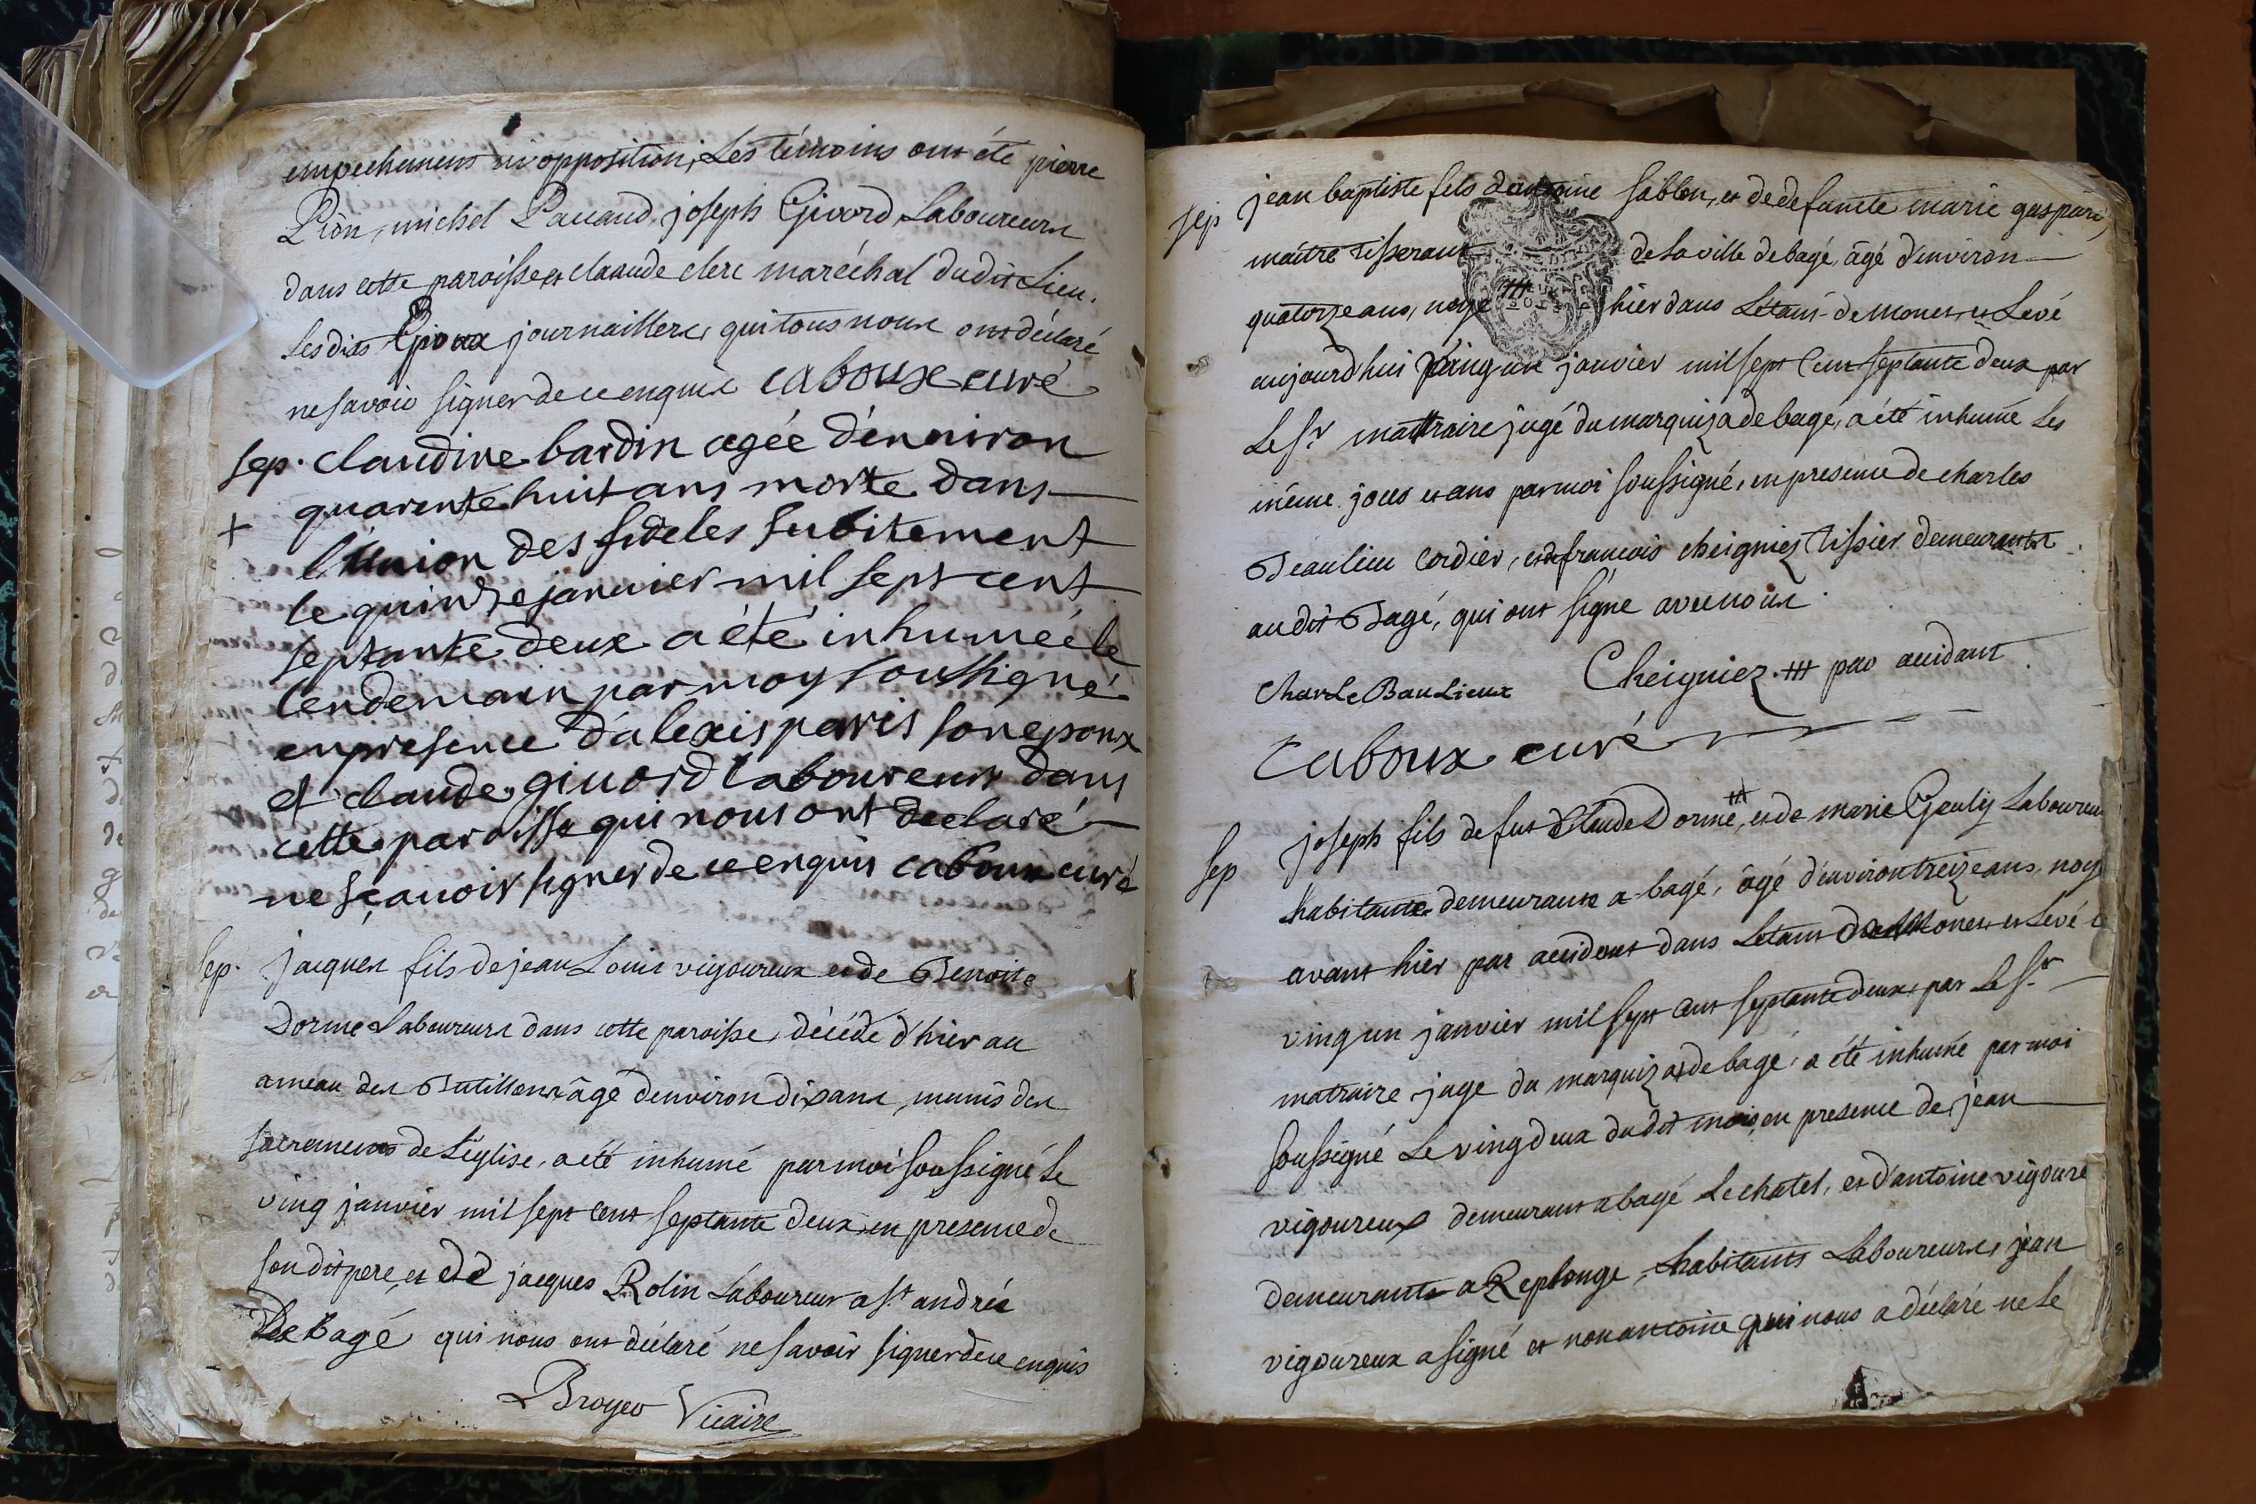 empechemens ni opposition, Les témoins ont été pierre
Pion, michel Pacaud, joseph Givord, Laboureurs
dans cette paroisse et claude clerc maréchal dudit Lieu.
Lesdits Epoux journaillers, qui tous nous ont déclaré
ne savoir signer de ce enquis caboux curé
sep. claudine bardin agée d'environ
+ quarente huit ans morte dans
l'union des fideles subitement
le quinze janvier mil sept cent
septante deux a été inhumée le
lendemain par moy soussigné
en presence d'alexis paris son epoux
et claude givord laboureur dans
cette paroisse qui nous ont declaré
ne sçavoir signer de ce enquis caboux curé
sep. jacques fils de jean Louis vigoureux et de Benoite
Dorme Laboureurs dans cette paroisse, décédé d'hier au
ameau des Butillons âgé d'environ dix ans, munis des
sacremens de L'église, a été inhumé par moi soussigné Le
ving janvier mil sept cent septante deux, en presence de
son dit pere, et de jacques Rolin Laboureur a st andré
de Bagé qui nous ont déclaré ne savoir signer de ce enquis
Broyer Vicaire
sep jean baptiste fils d'antoine sablon, et de defuncte marie gaspari,
maitre tisserant de la ville de bagé, âgé d'environ
quatorze ans, noyé ## hier dans L'étant de mones, et Levé
aujourd'hui ving un janvier mil sept cent septante deux par
Le Sr matraire juge du marquiza de bagé, a été inhumé Les
même jour et ans par moi soussigné, en presence de charles
Beaulieu cordier, et de francois cheigniez tissier demeurants
au dit Bagé, qui ont signé avec nous.
Charle BauLieux Cheigniez. ## par accidant
caboux curé
sep joseph fils de fut Claude Dorme, et de marie Geuly Laboureur
habitants demeurants a bagé, âgé d'environ treize ans, noyé
avant hier par accident dans L'étant de Mones et Levé le
ving un janvier mil sept cent septante deux, par Le Sr
matraire juge du marquizat de bagé, a été inhumé par moi
soussigné Le ving deux du dit mois, en presence de jean
vigoureux demeurant a bagé Le chatel, et d'antoine vigoure
demeurants a Replonge, habitants Laboureurs, jean
vigoureux a signé et non antoine qui nous a déclaré ne Le